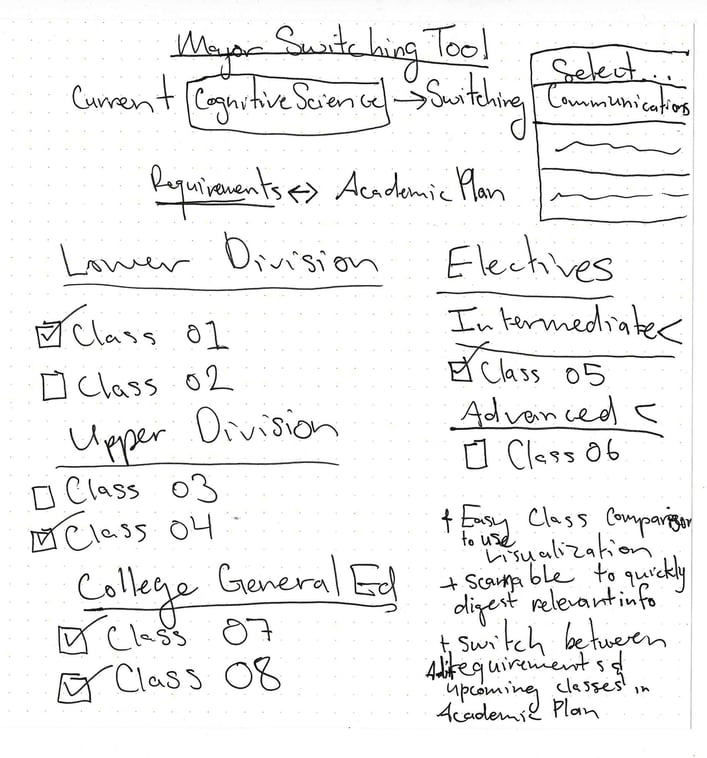 Major Switching Tool
Current Cognitive Science → Switching
Select...
Communications
Requirements ↔ Academic Plan
Lower Division
☑ Class 01
☐ Class 02
Upper Division
☐ Class 03
☑ Class 04
College General Ed
☑ Class 07
☑ Class 08
Electives
Intermediate <
☑ Class 05
Advanced <
☐ Class 06
+ Easy Class Comparison
to use
visualization
+ Scannable to quickly
digest relevant info
+ switch between
requirements &
upcoming classes in
Academic Plan